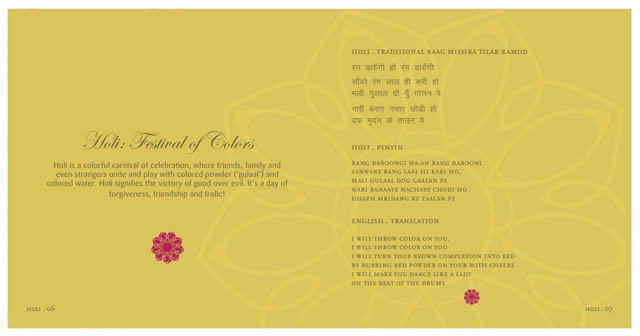 Holi: Festival of Colors
Holi is a colorful carnival of celebration, where friends, family and
even strangers unite and play with colored powder ('gulaal') and
colored water. Holi signifies the victory of good over evil. It's a day of
forgiveness, friendship and frolic!
HOLI . 06
HOLI . TRADITIONAL RAAG MISHRA TILAK KAMOD
रंग डारुँगी हाँ रंग डारुँगी
साँवरे रंग लाल ही करी हो
मली गुलाल दो युँ गालन पे
नारी बनाए नचाए छोडी हो
ढफ मृदंग के तालन पे
HOLI . PINYIN
RANG DAROONGI HA-AN RANG DAROONI
SANWARE RANG LAAL HI KARI HO,
MALI GULAAL DOU GAALAN PE
NARI BANAAYE NACHAYE CHODI HO
DHAPH MRIDANG KE TAALAN PE
ENGLISH . TRANSLATION
I WILL THROW COLOR ON YOU,
I WILL THROW COLOR ON YOU
I WILL TURN YOUR BROWN COMPLEXION INTO RED
BY RUBBING RED POWDER ON YOUR BOTH CHEEKS
I WILL MAKE YOU DANCE LIKE A LADY
ON THE BEAT OF THE DRUMS
HOLI . 07